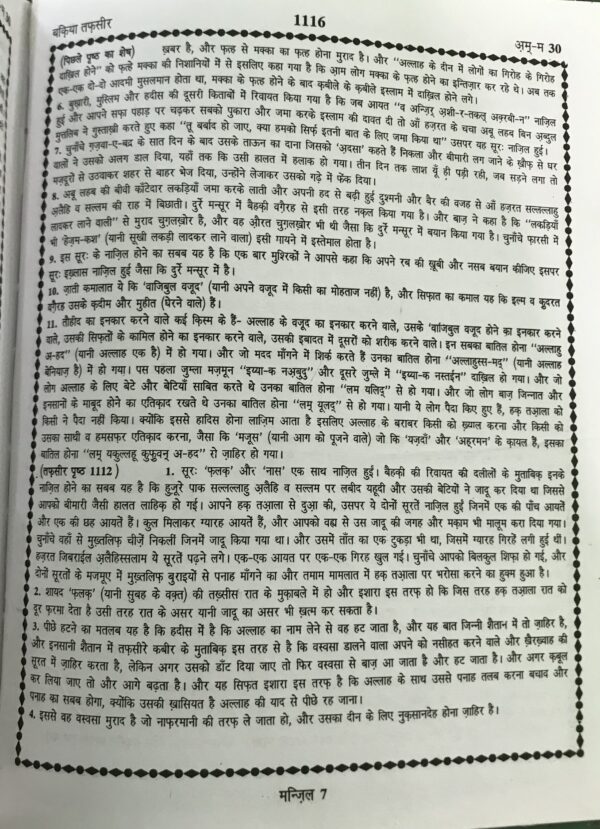 बक़िया तफ़्सीर
1116
अ़म्-म 30
(पिछले पृष्ठ का शेष) ख़बर है, और फ़त्ह से मक्का का फ़त्ह होना मुराद है। और "अल्लाह के दीन में लोगों का गिरोह के गिरोह
दाख़िल होने" को फ़त्हे मक्का की निशानियों में से इसलिए कहा गया है कि आ़म लोग मक्का के फ़त्ह होने का इन्तिज़ार कर रहे थे। अब तक
एक-एक दो-दो आदमी मुसलमान होता था, मक्का के फ़त्ह होने के बाद क़बीले के क़बीले इस्लाम में दाख़िल होने लगे।
6. बुख़ारी, मुस्लिम और हदीस की दूसरी किताबों में रिवायत किया गया है कि जब आयत "व अन्ज़िर् अ़शी-र-तकल् अक़्रबी-न" नाज़िल
हुई और आपने सफ़ा पहाड़ पर चढ़कर सबको पुकारा और जमा करके इस्लाम की दावत दी तो आँ हज़रत के चचा अबू लहब बिन अ़ब्दुल
मुत्तलिब ने गुस्ताख़ी करते हुए कहा "तू बर्बाद हो जाए, क्या हमको सिर्फ़ इतनी बात के लिए जमा किया था" उसपर यह सूरः नाज़िल हुई।
7. चुनाँचे ग़ज़्वा-ए-बद्र के सात दिन के बाद उसके ताऊन का दाना जिसको 'अ़दसा' कहते हैं निकला और बीमारी लग जाने के ख़ौफ़ से घर
वालों ने उसको अलग डाल दिया, यहाँ तक कि उसी हालत में हलाक हो गया। तीन दिन तक लाश यूँ ही पड़ी रही, जब सड़ने लगा तो
मज़दूरों से उठवाकर शहर से बाहर भेज दिया, उन्होंने लेजाकर उसको गढ़े में फेंक दिया।
8. अबू लहब की बीवी काँटेदार लकड़ियाँ जमा करके लाती और अपनी हद से बढ़ी हुई दुश्मनी और बैर की वजह से आँ हज़रत सल्लल्लाहु
अ़लैहि व सल्लम की राह में बिछाती। दुर्रे मन्सूर में बैहक़ी वग़ैरह से इसी तरह नक़ल किया गया है। और बाज़ ने कहा है कि "लकड़ियाँ
लादकर लाने वाली" से मुराद चुग़लख़ोर है, और वह औ़रत चुग़लख़ोर भी थी जैसा कि दुर्रे मन्सूर में बयान किया गया है। चुनाँचे फ़ारसी में
भी 'हेज़म-कश' (यानी सूखी लकड़ी लादकर लाने वाला) इसी मायने में इस्तेमाल होता है।
9. इस सूरः के नाज़िल होने का सबब यह है कि एक बार मुश्रिकों ने आपसे कहा कि अपने रब की ख़ूबी और नसब बयान कीजिए इसपर
सूरः इख़्लास नाज़िल हुई जैसा कि दुर्रे मन्सूर में है।
10. ज़ाती कमालात ये कि 'वाजिबुल वजूद' (यानी अपने वजूद में किसी का मोहताज नहीं) है, और सिफ़ात का कमाल यह कि इल्म व क़ुदरत
वग़ैरह उसके क़दीम और मुहीत (घेरने वाले) हैं।
11. तौहीद का इनकार करने वाले कई क़िस्म के हैं- अल्लाह के वजूद का इनकार करने वाले, उसके 'वाजिबुल वजूद होने का इनकार करने
वाले, उसकी सिफ़तों के कामिल होने का इनकार करने वाले, उसकी इबादत में दूसरों को शरीक करने वाले। इन सबका बातिल होना "अल्लाहु
अ-हद" (यानी अल्लाह एक है) में हो गया। और जो मदद माँगने में शिर्क करते हैं उनका बातिल होना "अल्लाहुस्स-मद्" (यानी अल्लाह
बेनियाज़ है) में हो गया। पस पहला जुम्ला मज़मून "इय्या-क नअ़्बुदु" और दूसरे जुम्ले में "इय्या-क नस्तईन" दाख़िल हो गया। और जो
लोग अल्लाह के लिए बेटे और बेटियाँ साबित करते थे उनका बातिल होना "लम् यलिद्" से हो गया। और जो लोग बाज़ जिन्नात और
इनसानों के माबूद होने का एतिक़ाद रखते थे उनका बातिल होना "लम् यूलद्" से हो गया। यानी ये लोग पैदा किए हुए हैं, हक़ तआ़ला को
किसी ने पैदा नहीं किया। क्योंकि इससे हादिस होना लाज़िम आता है इसलिए अल्लाह के बराबर किसी को ख़्याल करना और किसी को
उसका साथी व हमसफ़र एतिक़ाद करना, जैसा कि 'मजूस' (यानी आग को पूजने वाले) जो कि 'यज़्दाँ' और 'अह्रमन' के क़ायल हैं, इसका
बातिल होना "लम् यकुल्लहू कुफ़ुवन् अ-हद" रो ज़ाहिर हो गया।
(तफ़्सीर पृष्ठ 1112 ) 1. सूरः 'फ़लक़' और 'नास' एक साथ नाज़िल हुईं। बैहक़ी की रिवायत की दलीलों के मुताबिक़ इनके
नाज़िल होने का सबब यह है कि हुज़ूरे पाक सल्लल्लाहु अ़लैहि व सल्लम पर लबीद यहूदी और उसकी बेटियों ने जादू कर दिया था जिससे
आपको बीमारी जैसी हालत लाहिक़ हो गई। आपने हक़ तआ़ला से दुआ़ की, उसपर ये दोनों सूरतें नाज़िल हुईं जिनमें एक की पाँच आयतें
और एक की छह आयतें हैं। कुल मिलाकर ग्यारह आयतें हैं, और आपको वह्य से उस जादू की जगह और मक़ाम भी मालूम करा दिया गया।
चुनाँचे वहाँ से मुख़्तलिफ़ चीज़ें निकलीं जिनमें जादू किया गया था। और उसमें ताँत का एक टुकड़ा भी था, जिसमें ग्यारह गिरहें लगी हुई थीं।
हज़रत जिबराईल अ़लैहिस्सलाम ये सूरतें पढ़ने लगे। एक-एक आयत पर एक-एक गिरह खुल गई। चुनाँचे आपको बिलकुल शिफ़ा हो गई, और
दोनों सूरतों के मजमूए में मुख़्तलिफ़ बुराइयों से पनाह माँगने का और तमाम मामलात में हक़ तआ़ला पर भरोसा करने का हुक्म हुआ है।
2. शायद 'फ़लक़' (यानी सुबह के वक़्त) की तख़्सीस रात के मुक़ाबले में हो और इशारा इस तरफ़ हो कि जिस तरह हक़ तआ़ला रात को
दूर फ़रमा देता है उसी तरह रात के असर यानी जादू का असर भी ख़त्म कर सकता है।
3. पीछे हटने का मतलब यह है कि हदीस में है कि अल्लाह का नाम लेने से वह हट जाता है, और यह बात जिन्नी शैतान में तो ज़ाहिर है,
और इनसानी शैतान में तफ़्सीरे कबीर के मुताबिक़ इस तरह से है कि वस्वसा डालने वाला अपने को नसीहत करने वाले और ख़ैरख़्वाह की
सूरत में ज़ाहिर करता है, लेकिन अगर उसको डाँट दिया जाए तो फिर वस्वसा से बाज़ आ जाता है और हट जाता है। और अगर क़बूल
कर लिया जाए तो और आगे बढ़ता है। और यह सिफ़त इशारा इस तरफ़ है कि अल्लाह के साथ उससे पनाह तलब करना बचाव और
पनाह का सबब होगा, क्योंकि उसकी ख़ासियत है अल्लाह की याद से पीछे रह जाना।
4. इससे वह वस्वसा मुराद है जो नाफ़रमानी की तरफ़ ले जाता हो, और उसका दीन के लिए नुक़सानदेह होना ज़ाहिर है।
मन्ज़िल 7